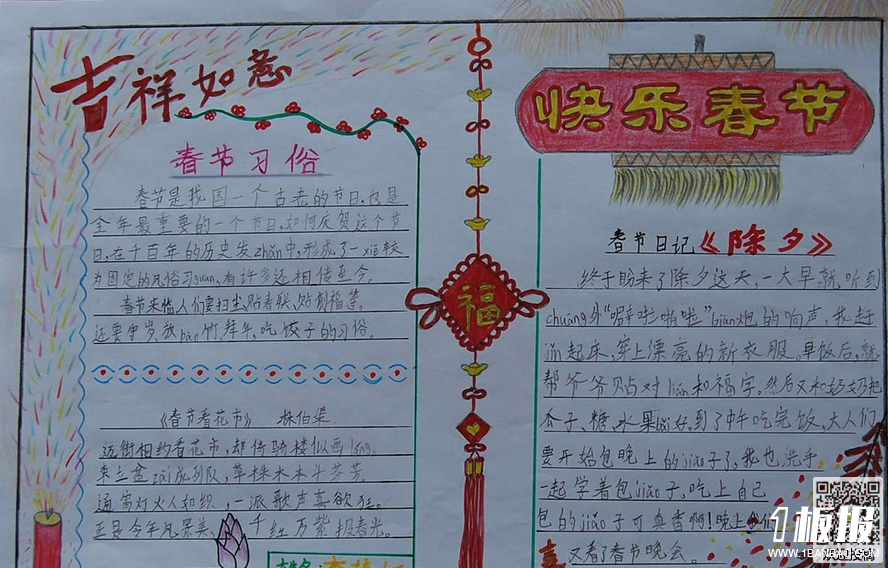 吉祥如意
春节习俗
春节是我国一个古老的节日,也是
全年最重要的一个节日,如何庆贺这个节
日,在千百年的历史发zhǎn中,形成了一xiē较
为固定的风俗习guàn,有许多还相传至今。
春节来临,人们要扫尘,贴春联,贴
还要守岁放bào竹,拜年,吃饺子的习俗。
《春节看花市》 林伯渠
迈街相约看花市,却倚骑楼似画
束立盆zāi成列队,草株木本斗芳芳。
通宵灯火人和织,一派歌声喜欲狂。
正是今年风景美,千红万紫报春光。
福
快乐春节
春节日记《除夕》
终于盼来了除夕这天,一大早就听到
chuāng外“噼啦啪啦”biān炮的响声,我赶
jǐn起床,穿上漂亮的新衣服。早饭后,就
帮爷爷贴对lián和福字。然后又和奶奶把
瓜子、糖、水果bǎi好。到了中午吃完饭,大人们
要开始包晚上的jiǎo子了,我也洗手
一起学着包jiǎo子,吃上自己
包的jiǎo子可真香啊!晚上我们
又看了春节晚会。
喜
1板报
WWW.1BANBAO.COM